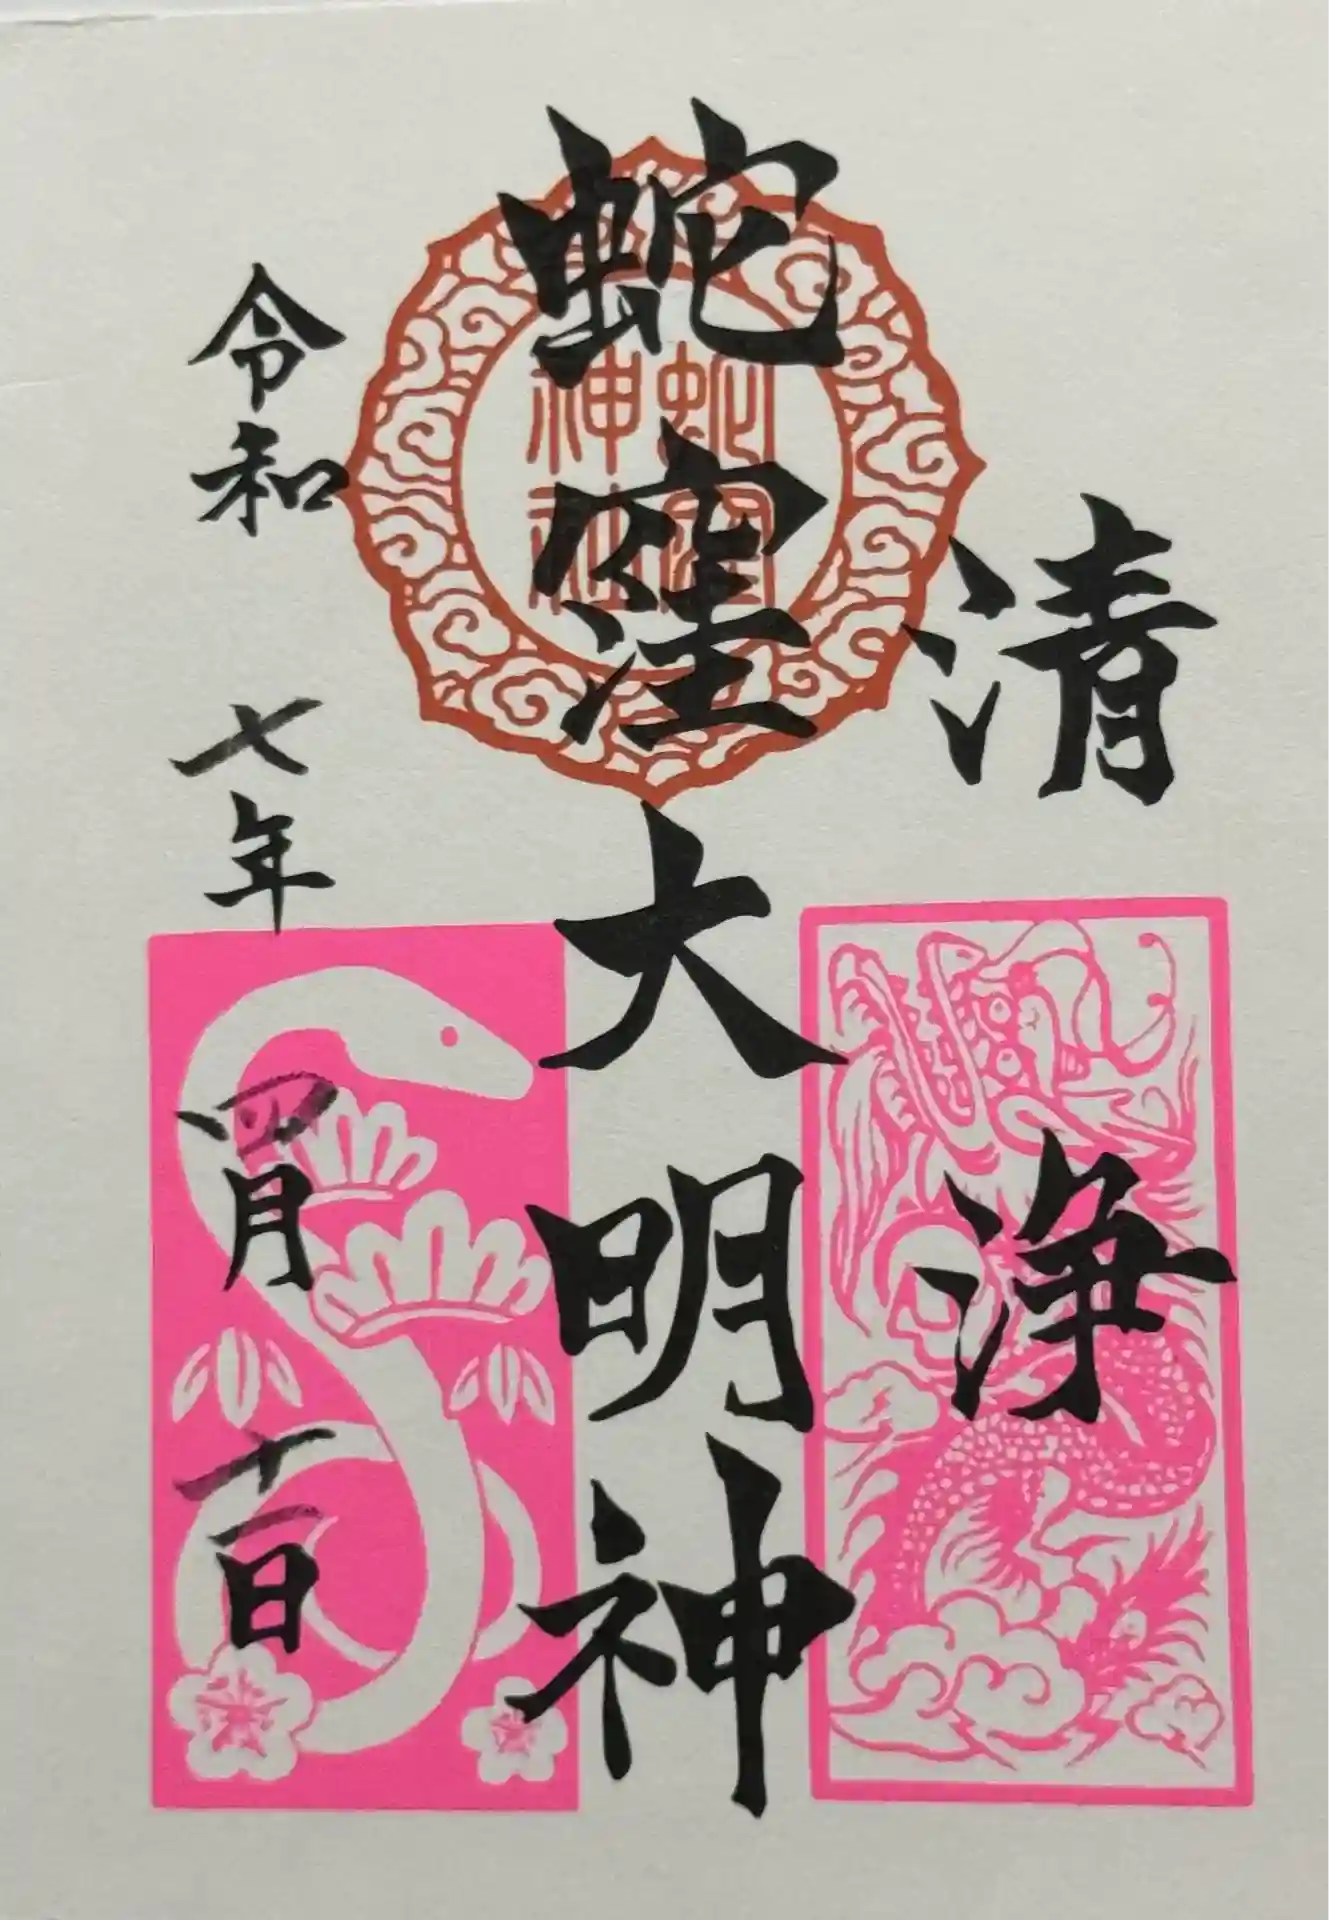 清浄
蛇窪大明神
蛇窪神社
令和七年四月十一日